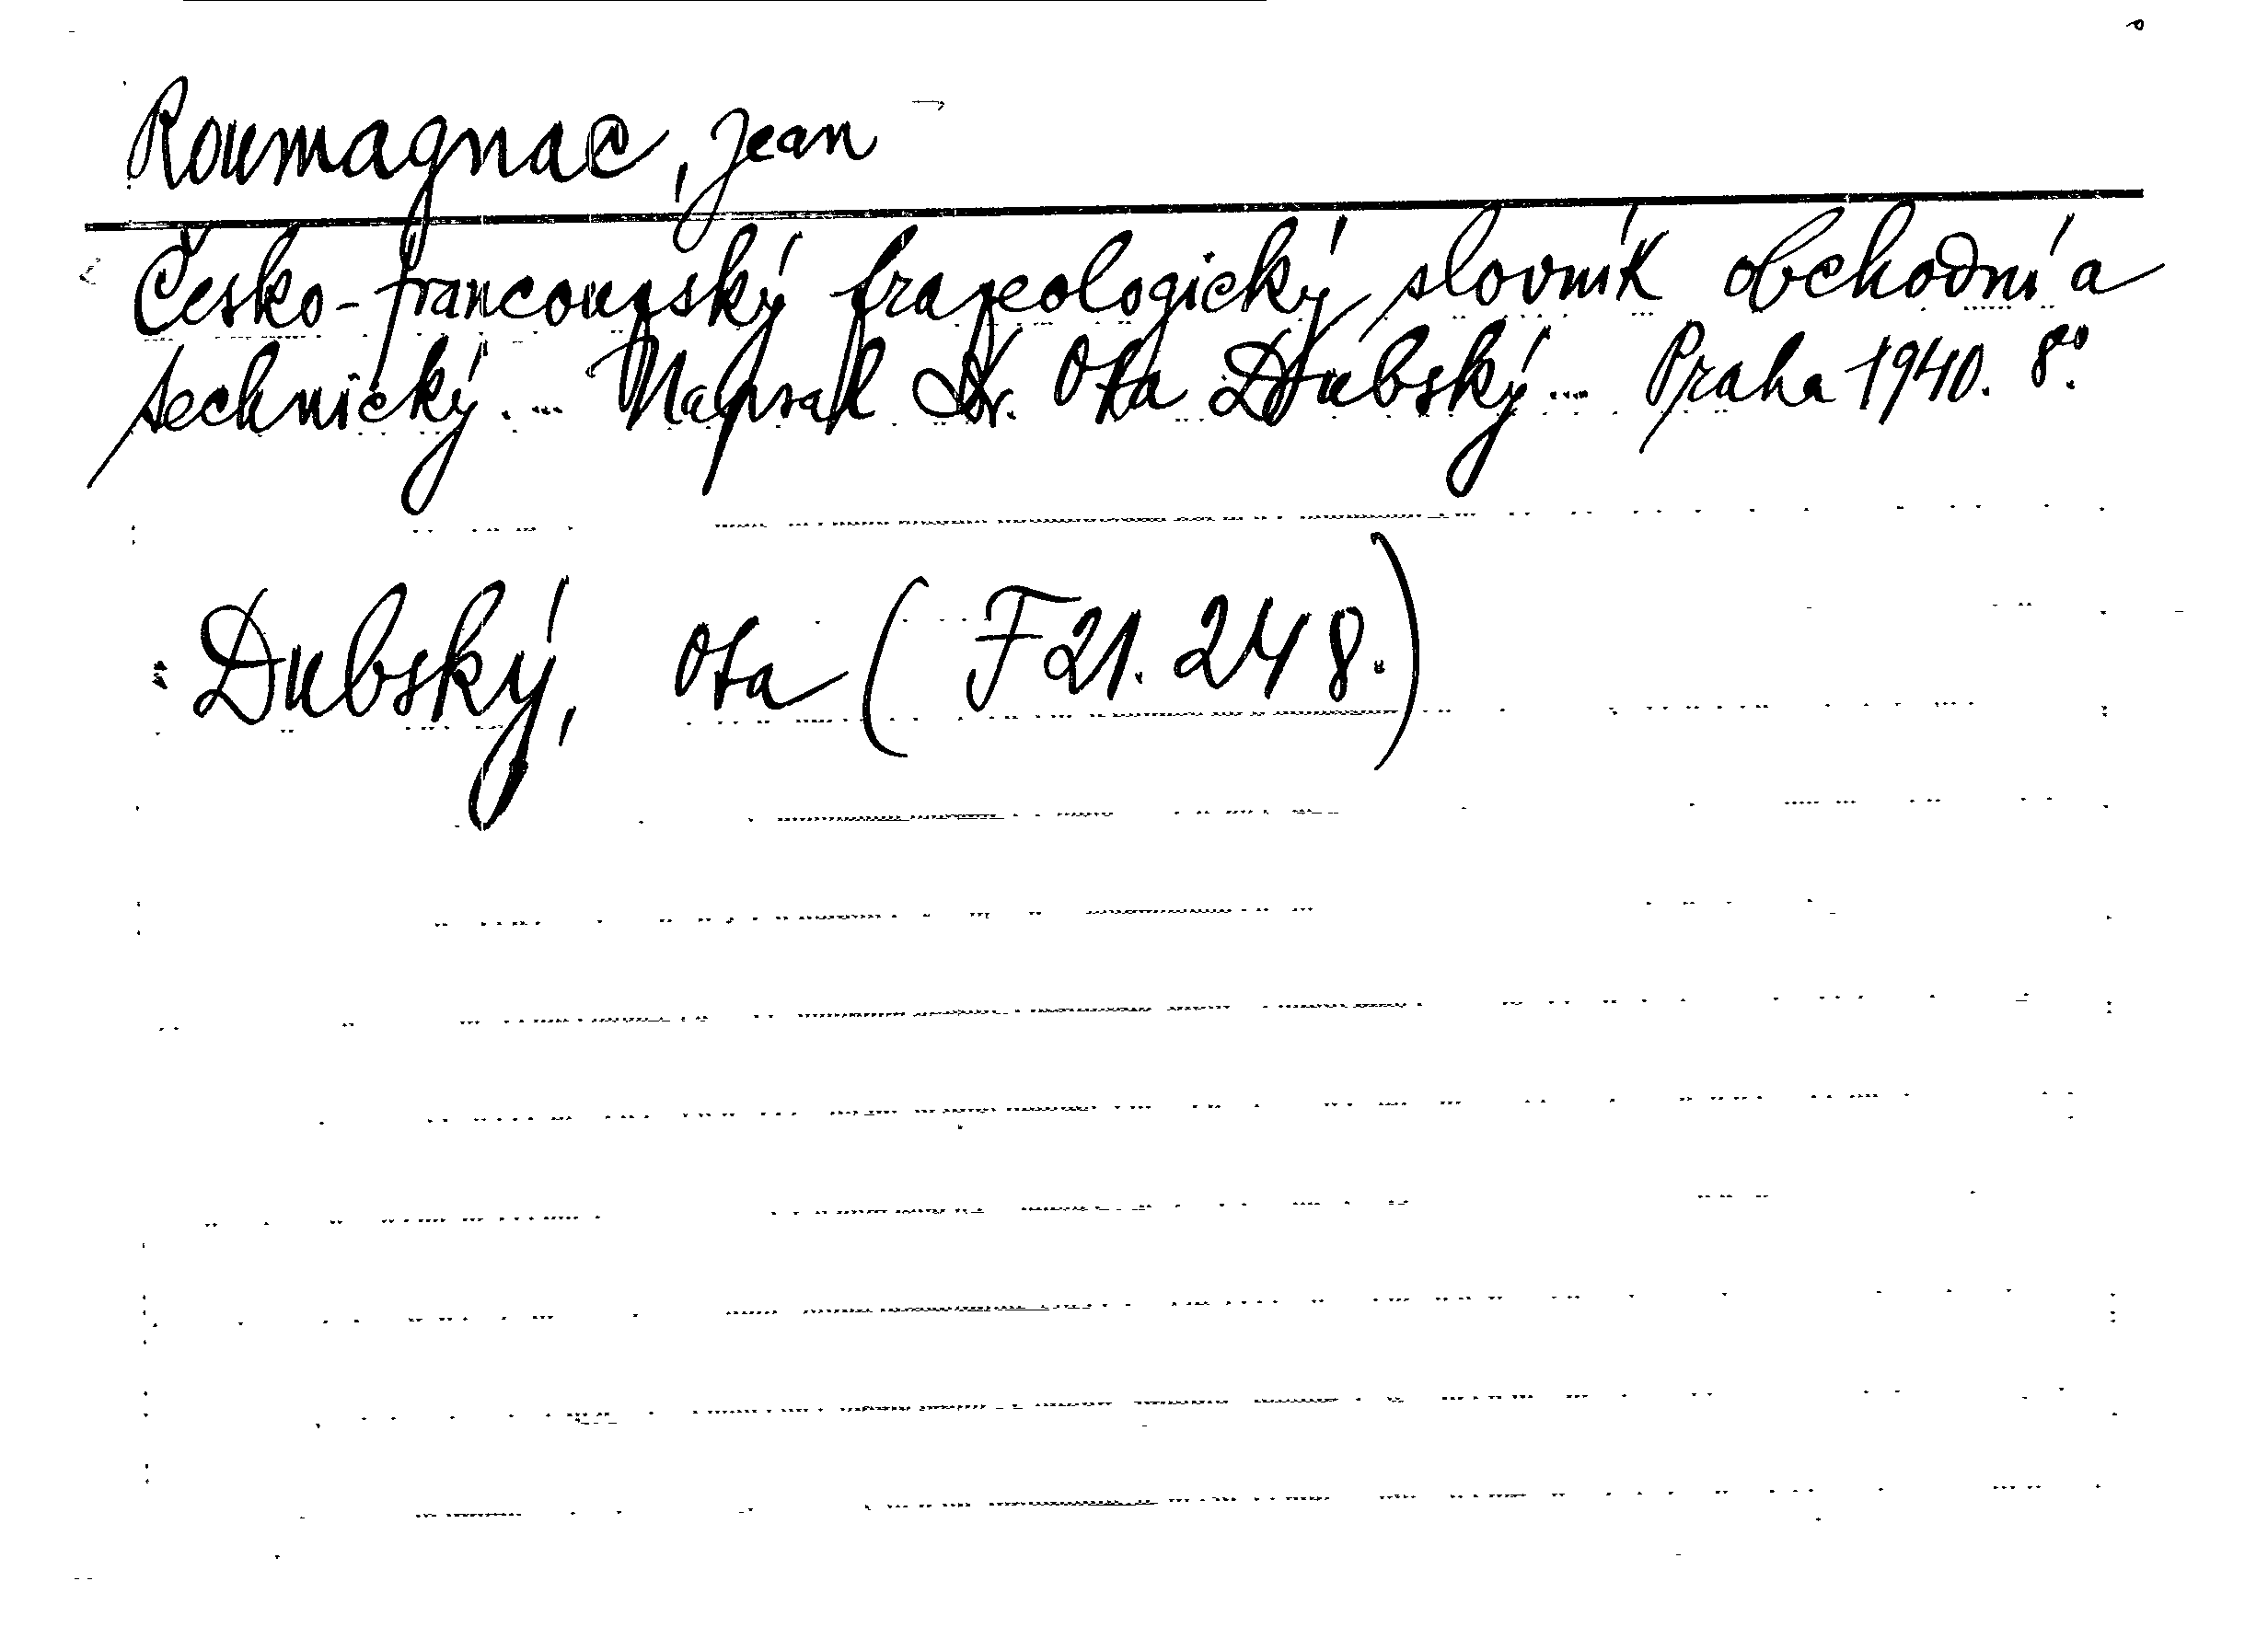 Roumagnac, Jean
Česko-francouzský frazeologický slovník obchodní a
technický. ... Napsal Dr. Ota Dubský ... Praha 1940. 8°.
Dubský, Ota (F 21.248.)